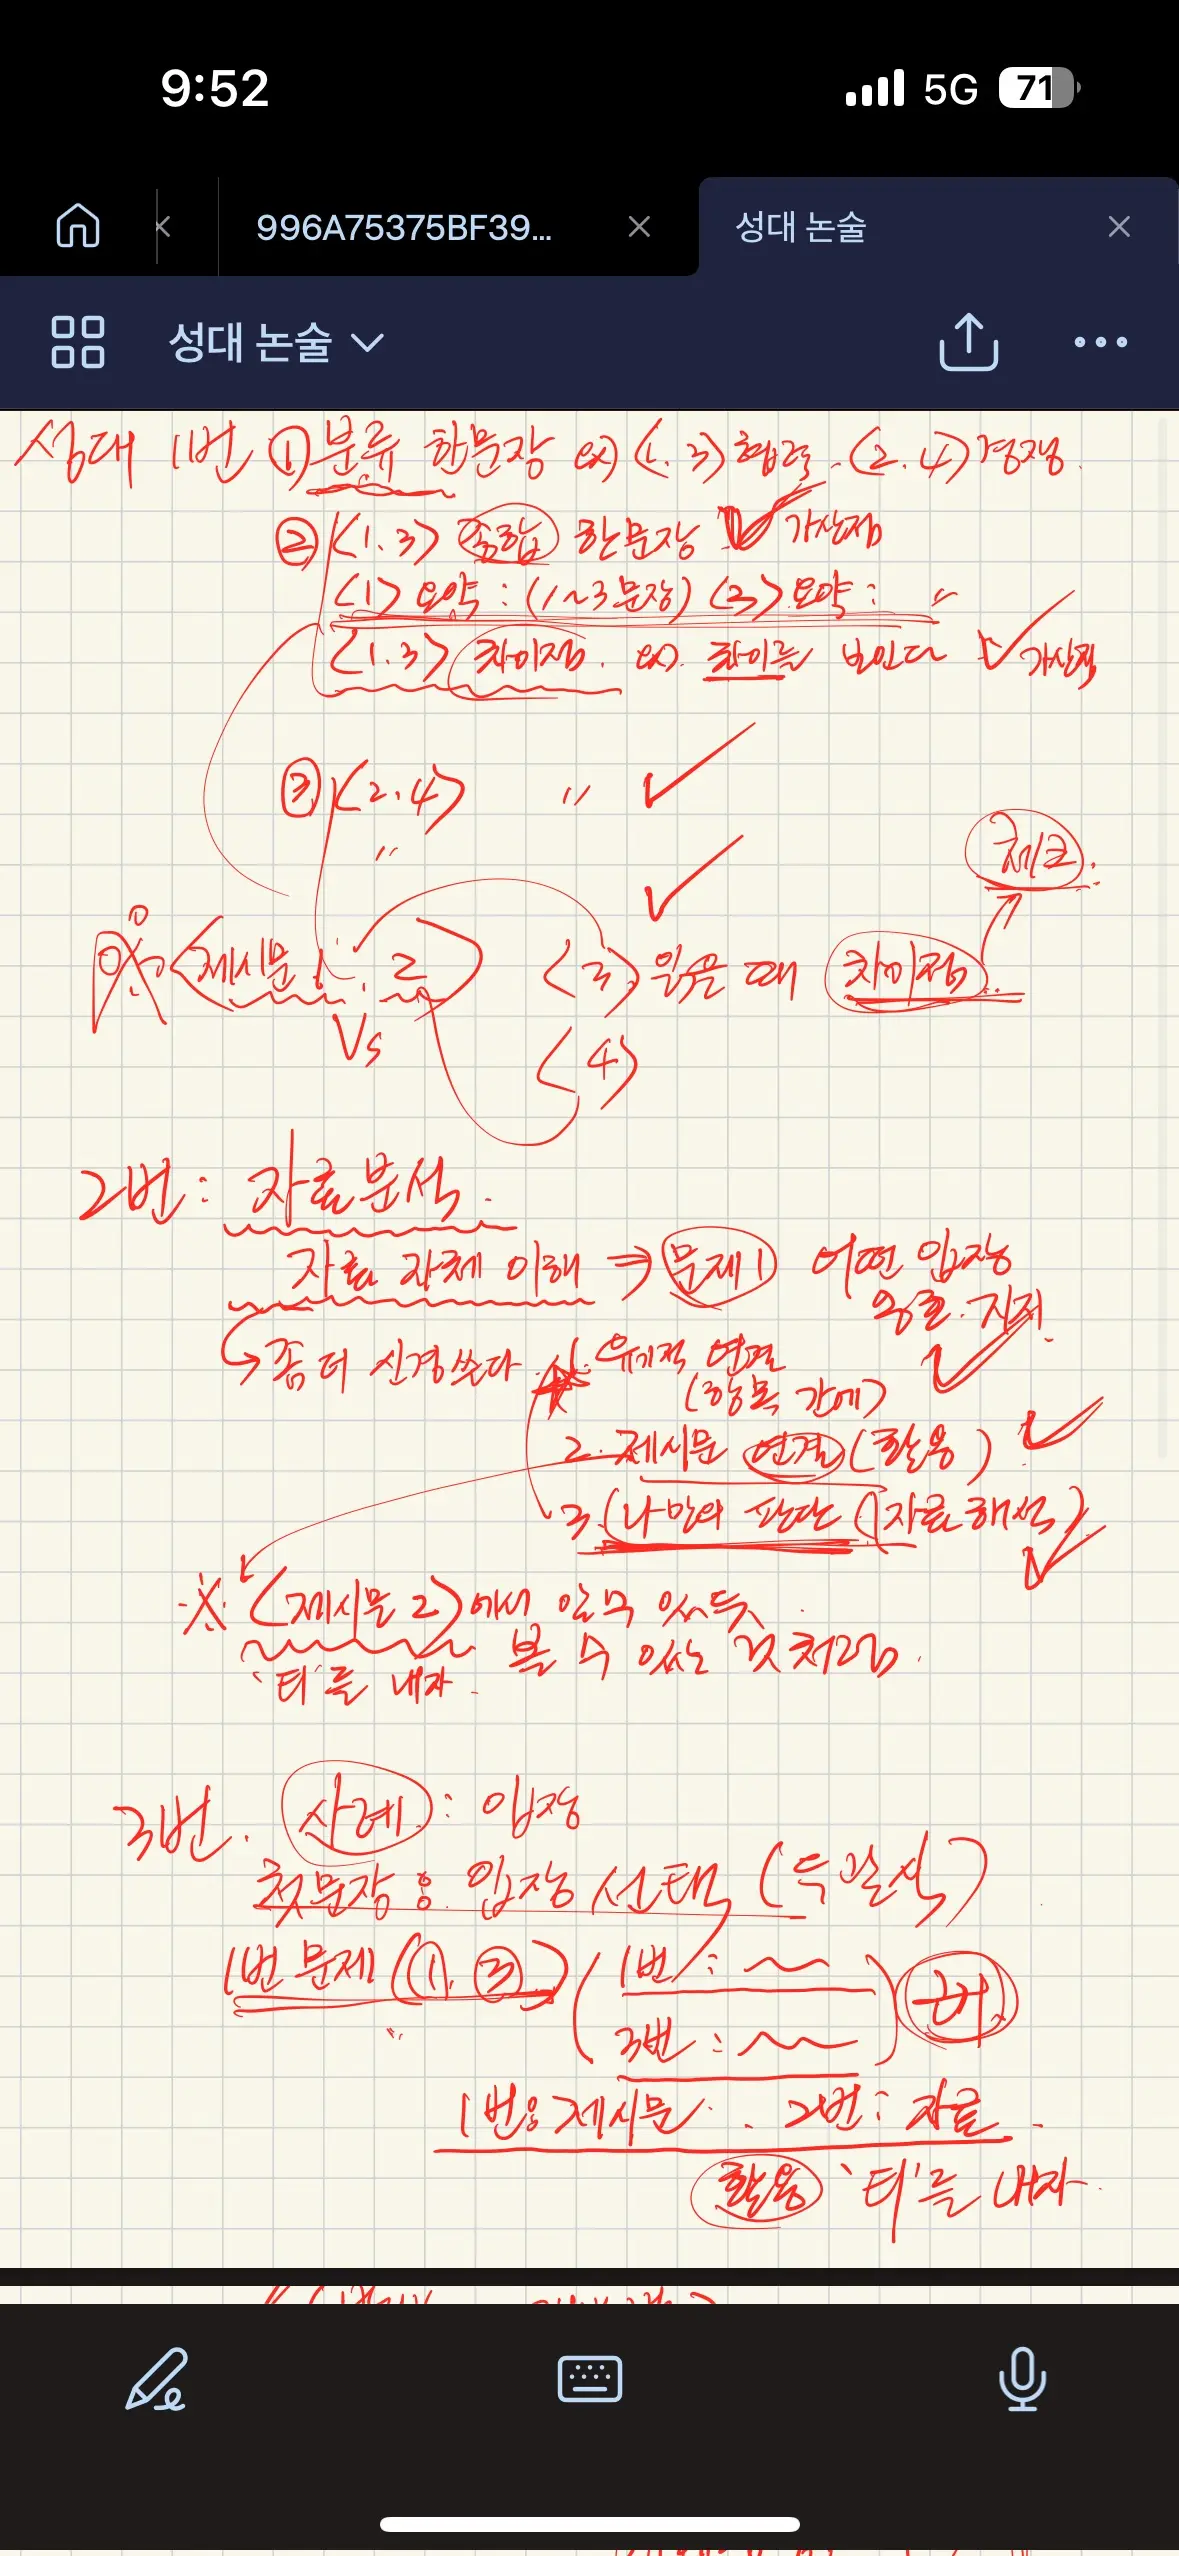 9:52 5G 71
996A75375BF39... 성대 논술
성대 논술
성대 1번 ① 분류 한문장 ex) <1, 3> 협력, <2, 4> 경쟁.
② <1, 3> 종합 한문장 가산점
<1> 요약 : (1~3문장) <3> 요약 : "
<1, 3> 차이점. ex) 차이를 보인다 가산점
③ <2, 4> "
"
<제시문 1, 2> <3> 읽을 때 차이점. 체크.
Vs <4>
2번 : 자료분석.
자료 자체 이해 ⇒ 문제1 어떤 입장
옹호. 지지.
→ 좀 더 신경쓴다 ★1. 유기적 연결
(항목 간에)
2. 제시문 연결 (활용)
3. (나만의 판단 (자료해석)
※ <제시문 2>에서 알 수 있듯,
볼 수 있는 것처럼.
'티'를 내자.
3번. 사례 : 입장
첫문장 : 입장 선택 (두괄식)
1번 문제 (①, ③) (1번 : ~~
" 3번 : ~~)
1번 : 제시문. 2번 : 자료.
활용 '티'를 내자.